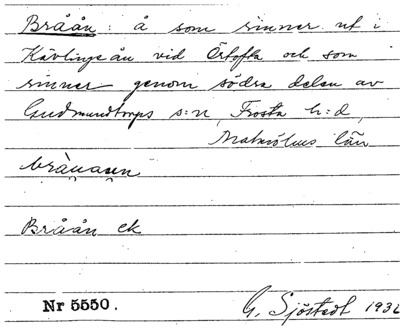 Bråån: å som rinner ut i
Kävlinge ån vid Örtofta och som
rinner genom södra delen av
Gudmundtorps s:n, Frosta h:d,
Malmöhus län
Bråån ek
Nr 5550.
G. Sjöstedt